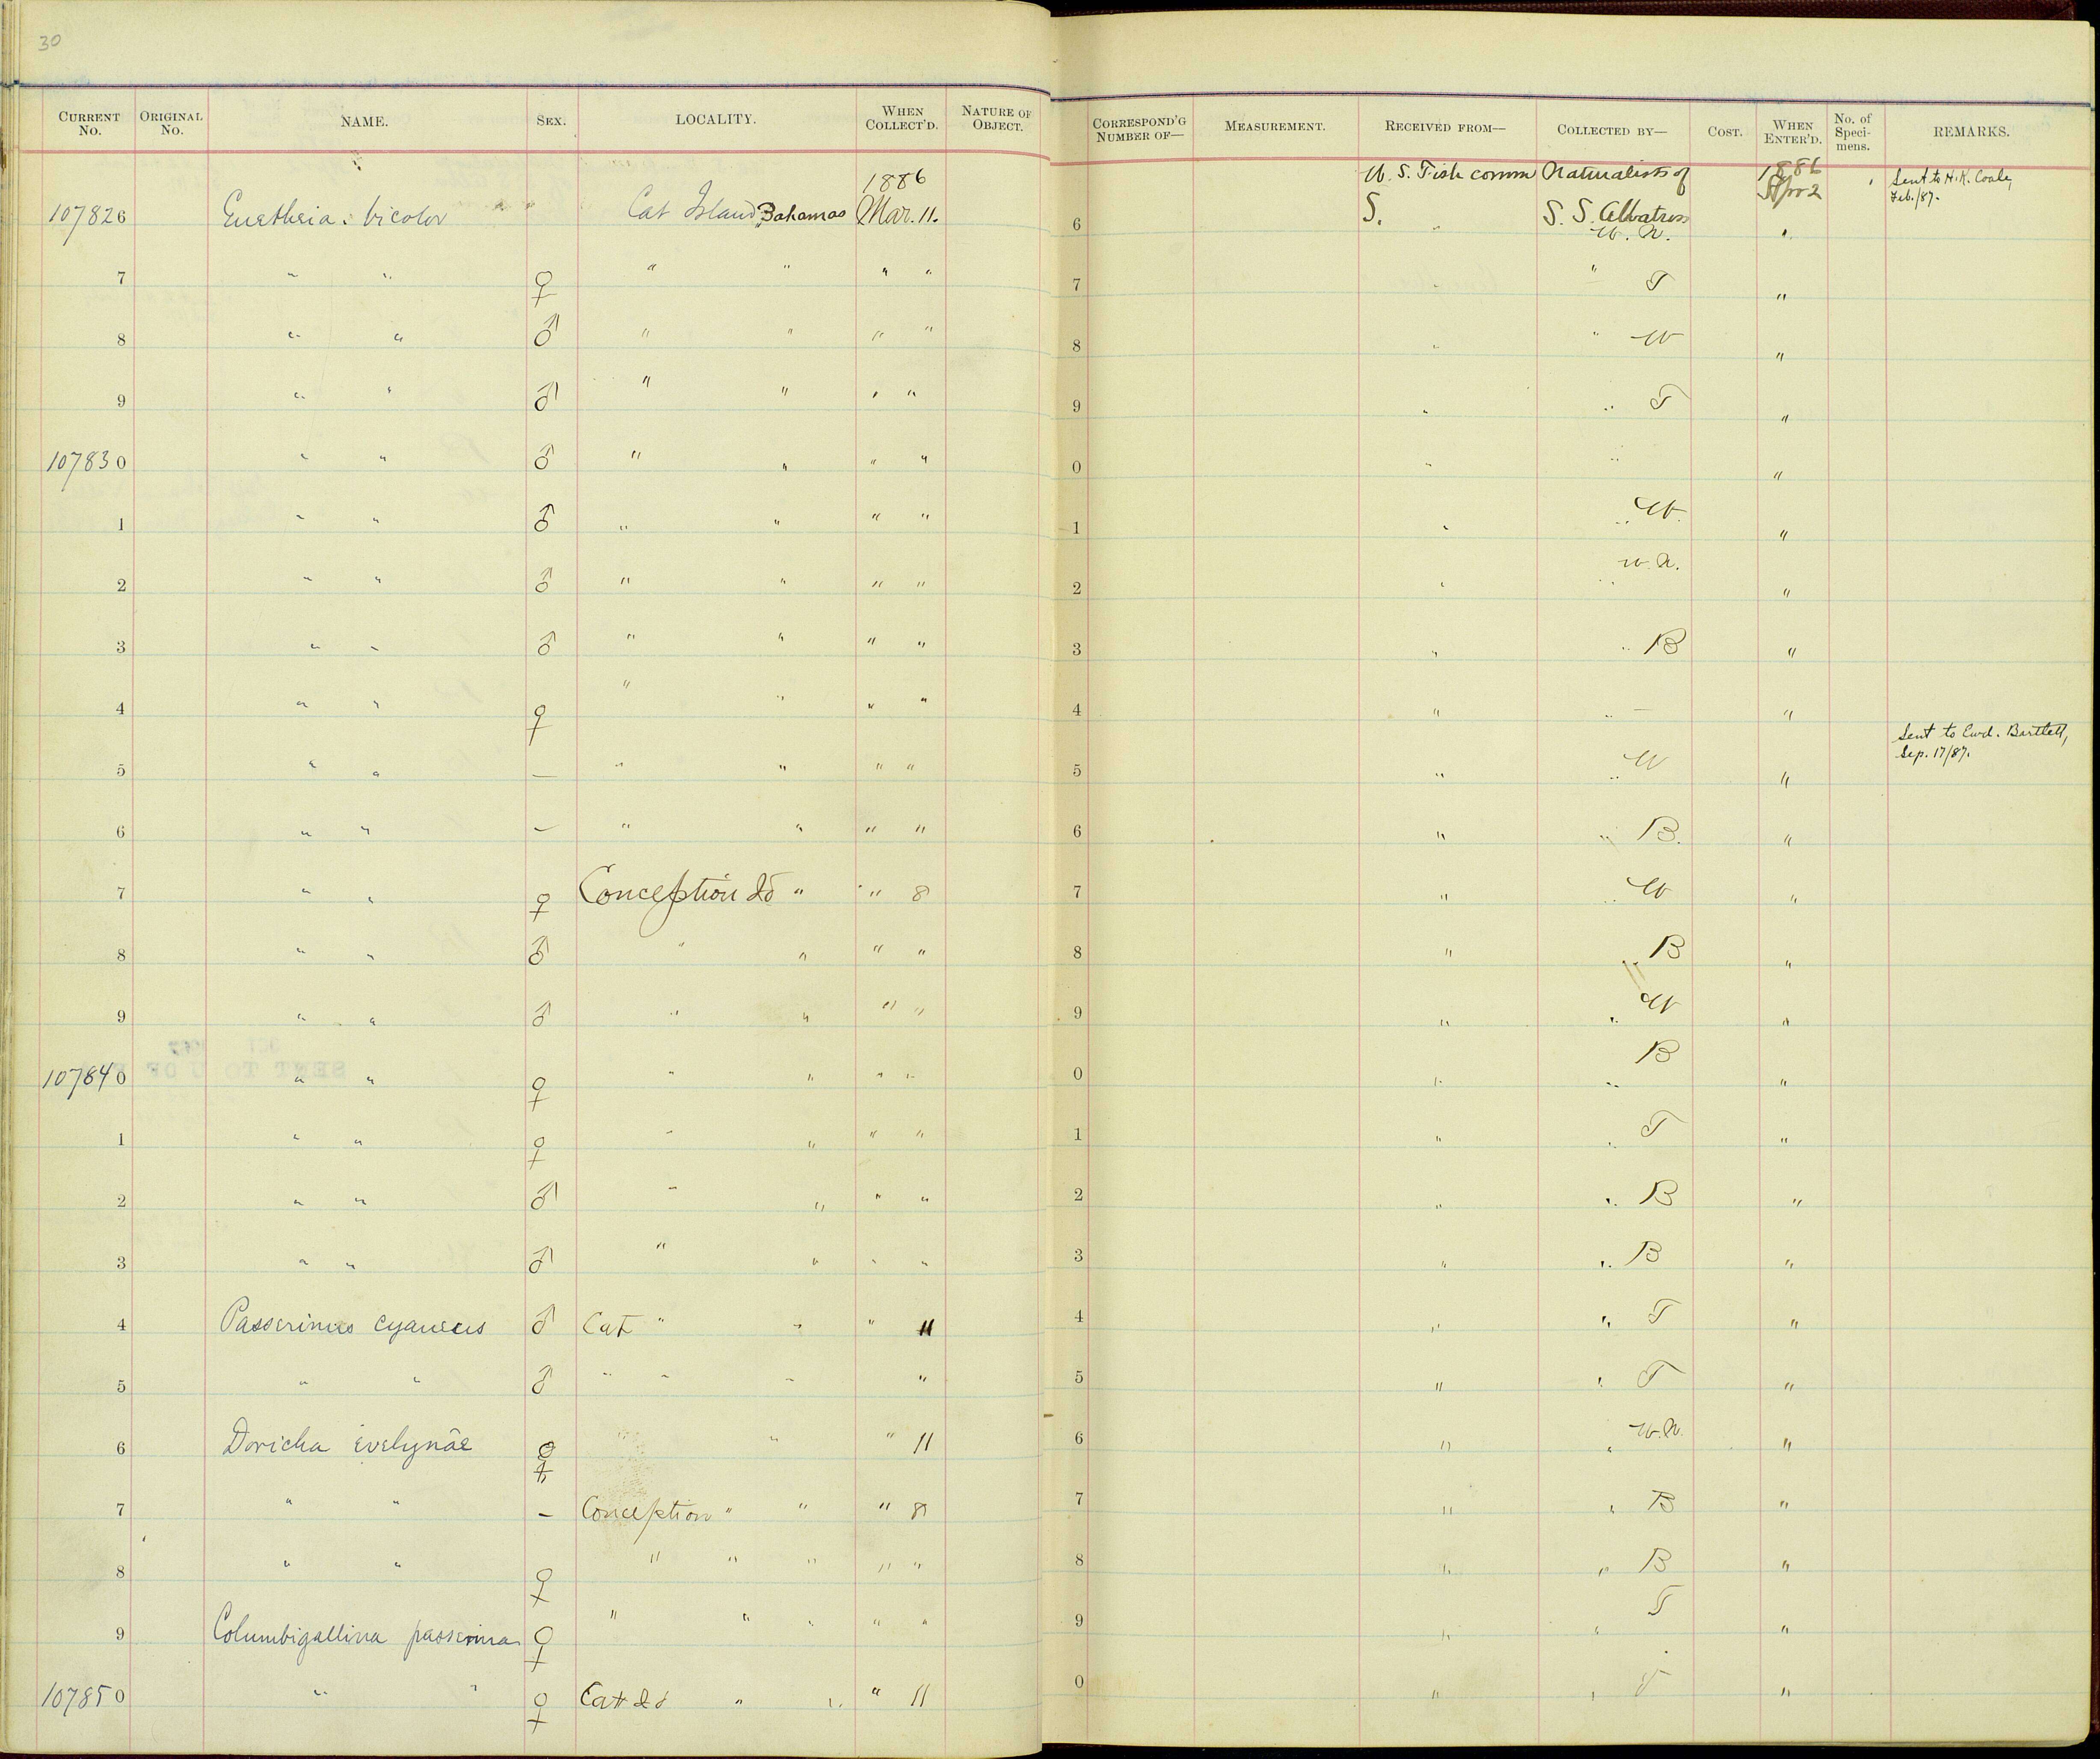 30
CURRENT No. ORIGINAL No. NAME. SEX. LOCALITY. WHEN COLLECT'D. NATURE OF OBJECT. CORRESPOND'G NUMBER OF— MEASUREMENT. RECEIVED FROM— COLLECTED BY— COST. WHEN ENTER'D. No. of Speci-mens. REMARKS.
1886 U. S. Fish comm Naturalists of 1886 Sent to H. K. Coale,
107826 Euetheia. bicolor Cat Island, Bahamas Mar. 11. 6 S. S. S. Albatross Apr 2 Feb./87.
W. N.
7 " " ♀ " " " " 7 " " T "
8 " " ♂ " " " " 8 " " W "
9 " " ♂ " " " " 9 " " T "
107830 " " ♂ " " " " 0 " " "
1 " " ♂ " " " " 1 " " W. "
2 " " ♂ " " " " 2 " " W. N. "
3 " " ♂ " " " " 3 " " B "
4 " " ♀ " " " " 4 " " — "
5 " " — " " " " 5 " " W " Sent to Ewd. Bartlett,
Sep. 17/87.
6 " " — " " " " 6 " " B. "
7 " " ♀ Conception Id " " 8 7 " " W "
8 " " ♂ " " " " 8 " " B "
9 " " ♂ " " " " 9 " " W "
107840 " " ♀ " " " " 0 " " B "
1 " " ♀ " " " " 1 " " T "
2 " " ♂ " " " " 2 " " B "
3 " " ♂ " " " " 3 " " B "
4 Passerinus cyaneus ♂ Cat " " " 11 4 " " T "
5 " " ♂ " " " " 5 " " T "
6 Doricha evelynae ♀ " " " 11 6 " " W. N. "
7 " " — Conception " " " 8 7 " " B "
8 " " ♀ " " " " " 8 " " B "
9 Columbigallina passerina ♀ " " " " " 9 " " T "
107850 " " ♀ Cat Id " " " 11 0 " " T "